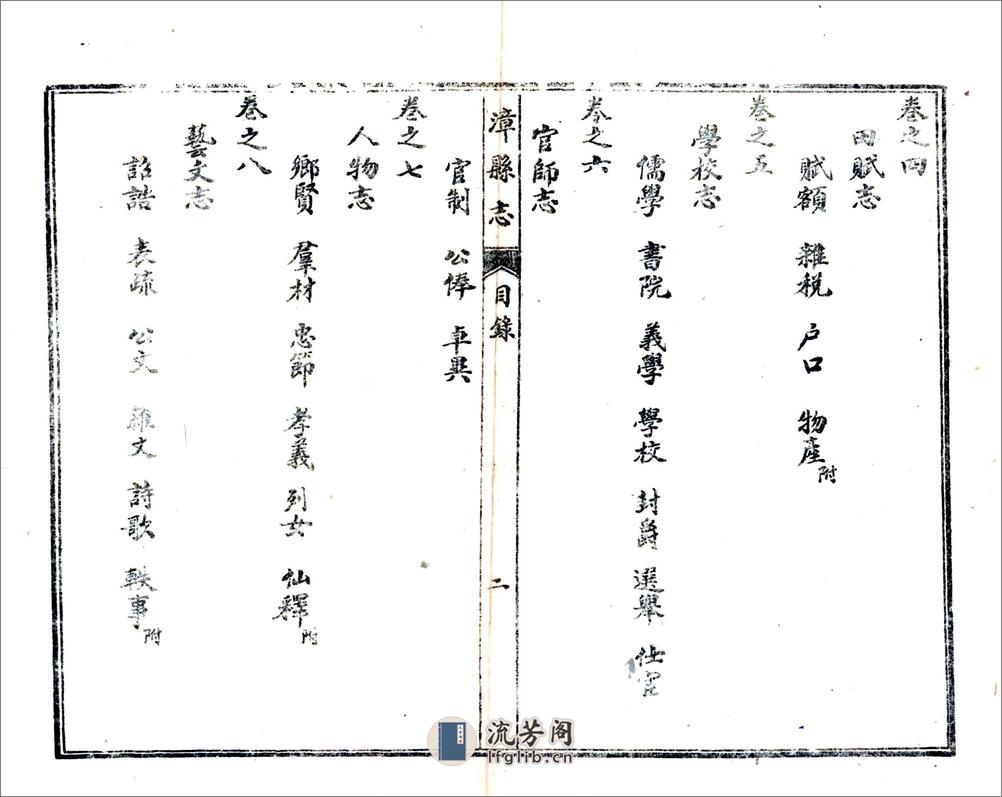 卷之四
田賦志
賦額 雜稅 户口 物產附
卷之五
學校志
儒學 書院 義學 學校 封爵 選舉 仕宦
卷之六
官師志
漳縣志 目錄 二
官制 公俸 卓異
卷之七
人物志
鄉賢 羣材 忠節 孝義 列女 仙釋附
卷之八
藝文志
詔誥 表疏 公文 雜文 詩歌 軼事附
流芳阁
lfglib.cn